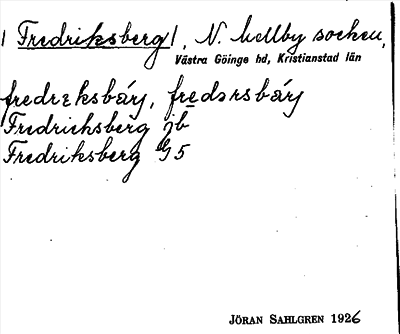 | Fredriksberg |, N. Mellby socken,
Västra Göinge hd, Kristianstad län
fredrɛksbárj, fredərsbárj
Fredrichsberg jb
Fredriksberg G 5
JÖRAN SAHLGREN 1926